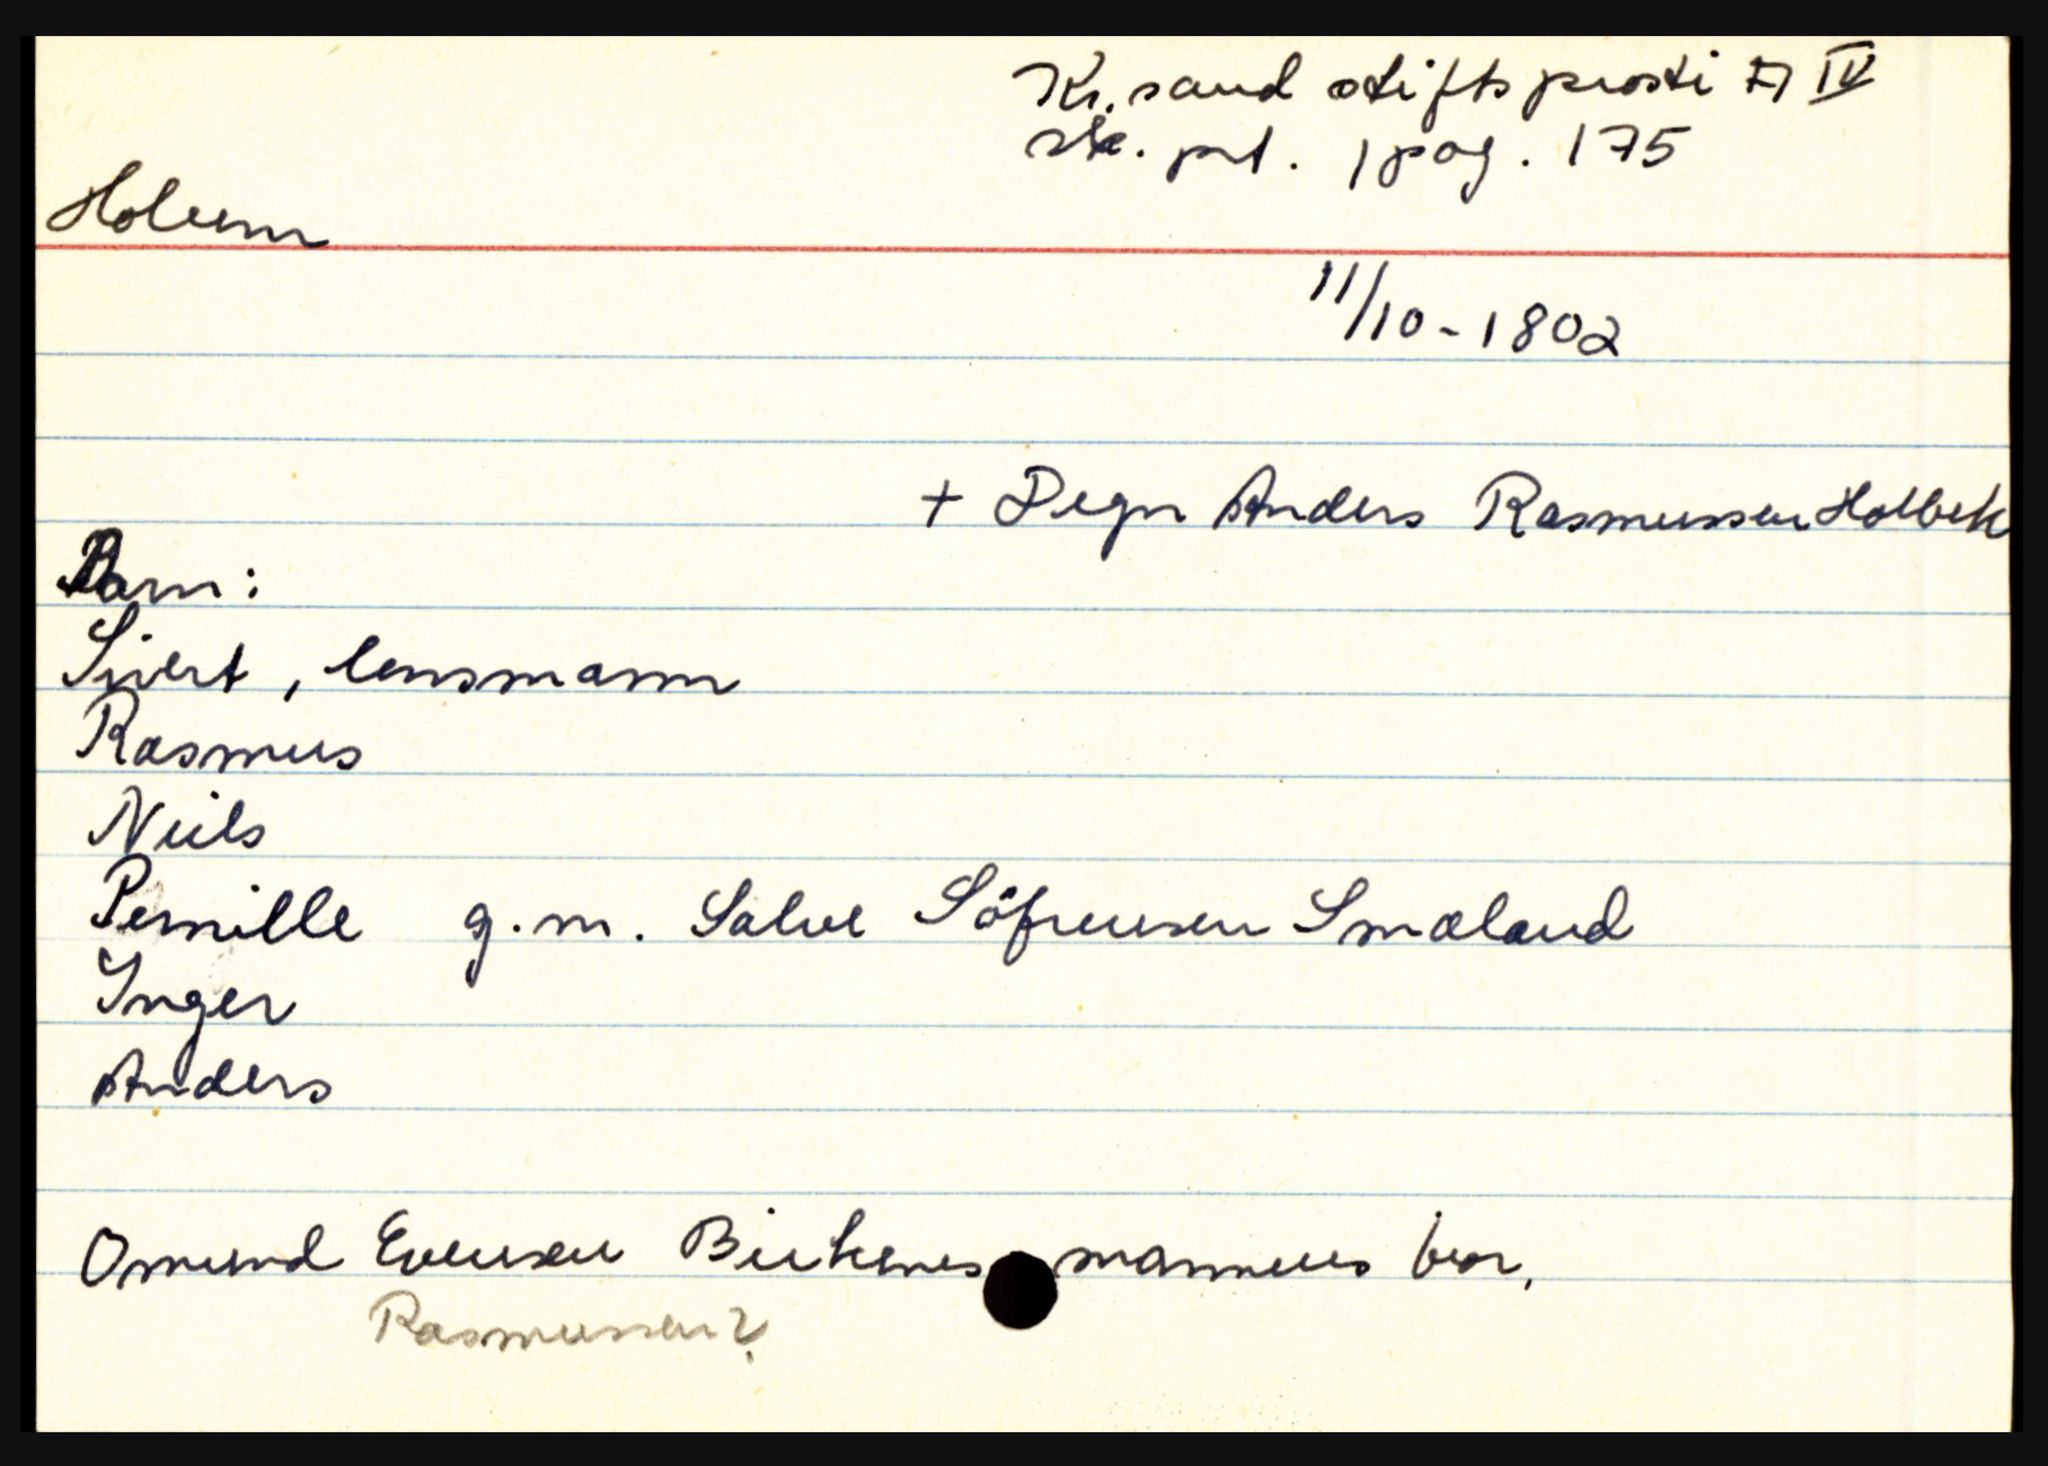 Kr.sand stiftsprosti A IV
sk. prt. 1 pag. 175
Holum
11/10-1802
+ Degn Anders Rasmussen Holbek
Barn:
Sivert, lensmann
Rasmus
Niels
Pernille g.m. Salve Söfrensen Smaland
Inger
Anders
Omund Evensen Birkenes mannens bror.
Rasmussen?